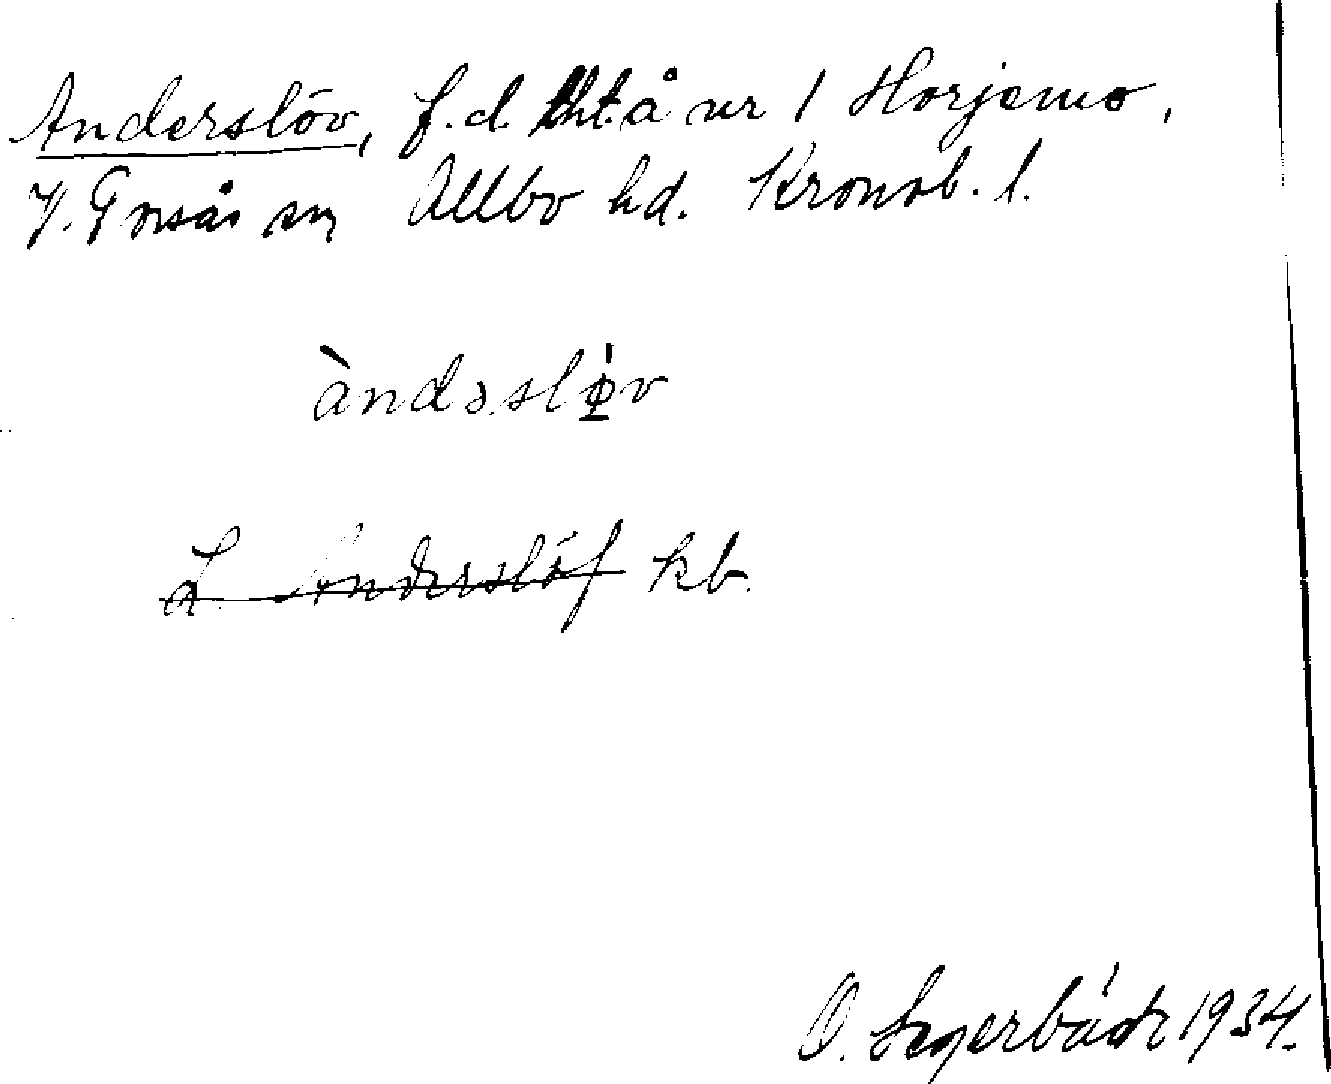 Anderslöv, f.d. lht å nr 1 Horjemo,
V. Torsås sn Allbo hd. Kronob. l.
àndəsløv
L. Anderslöf kb.
O. Segerbäck 1934.